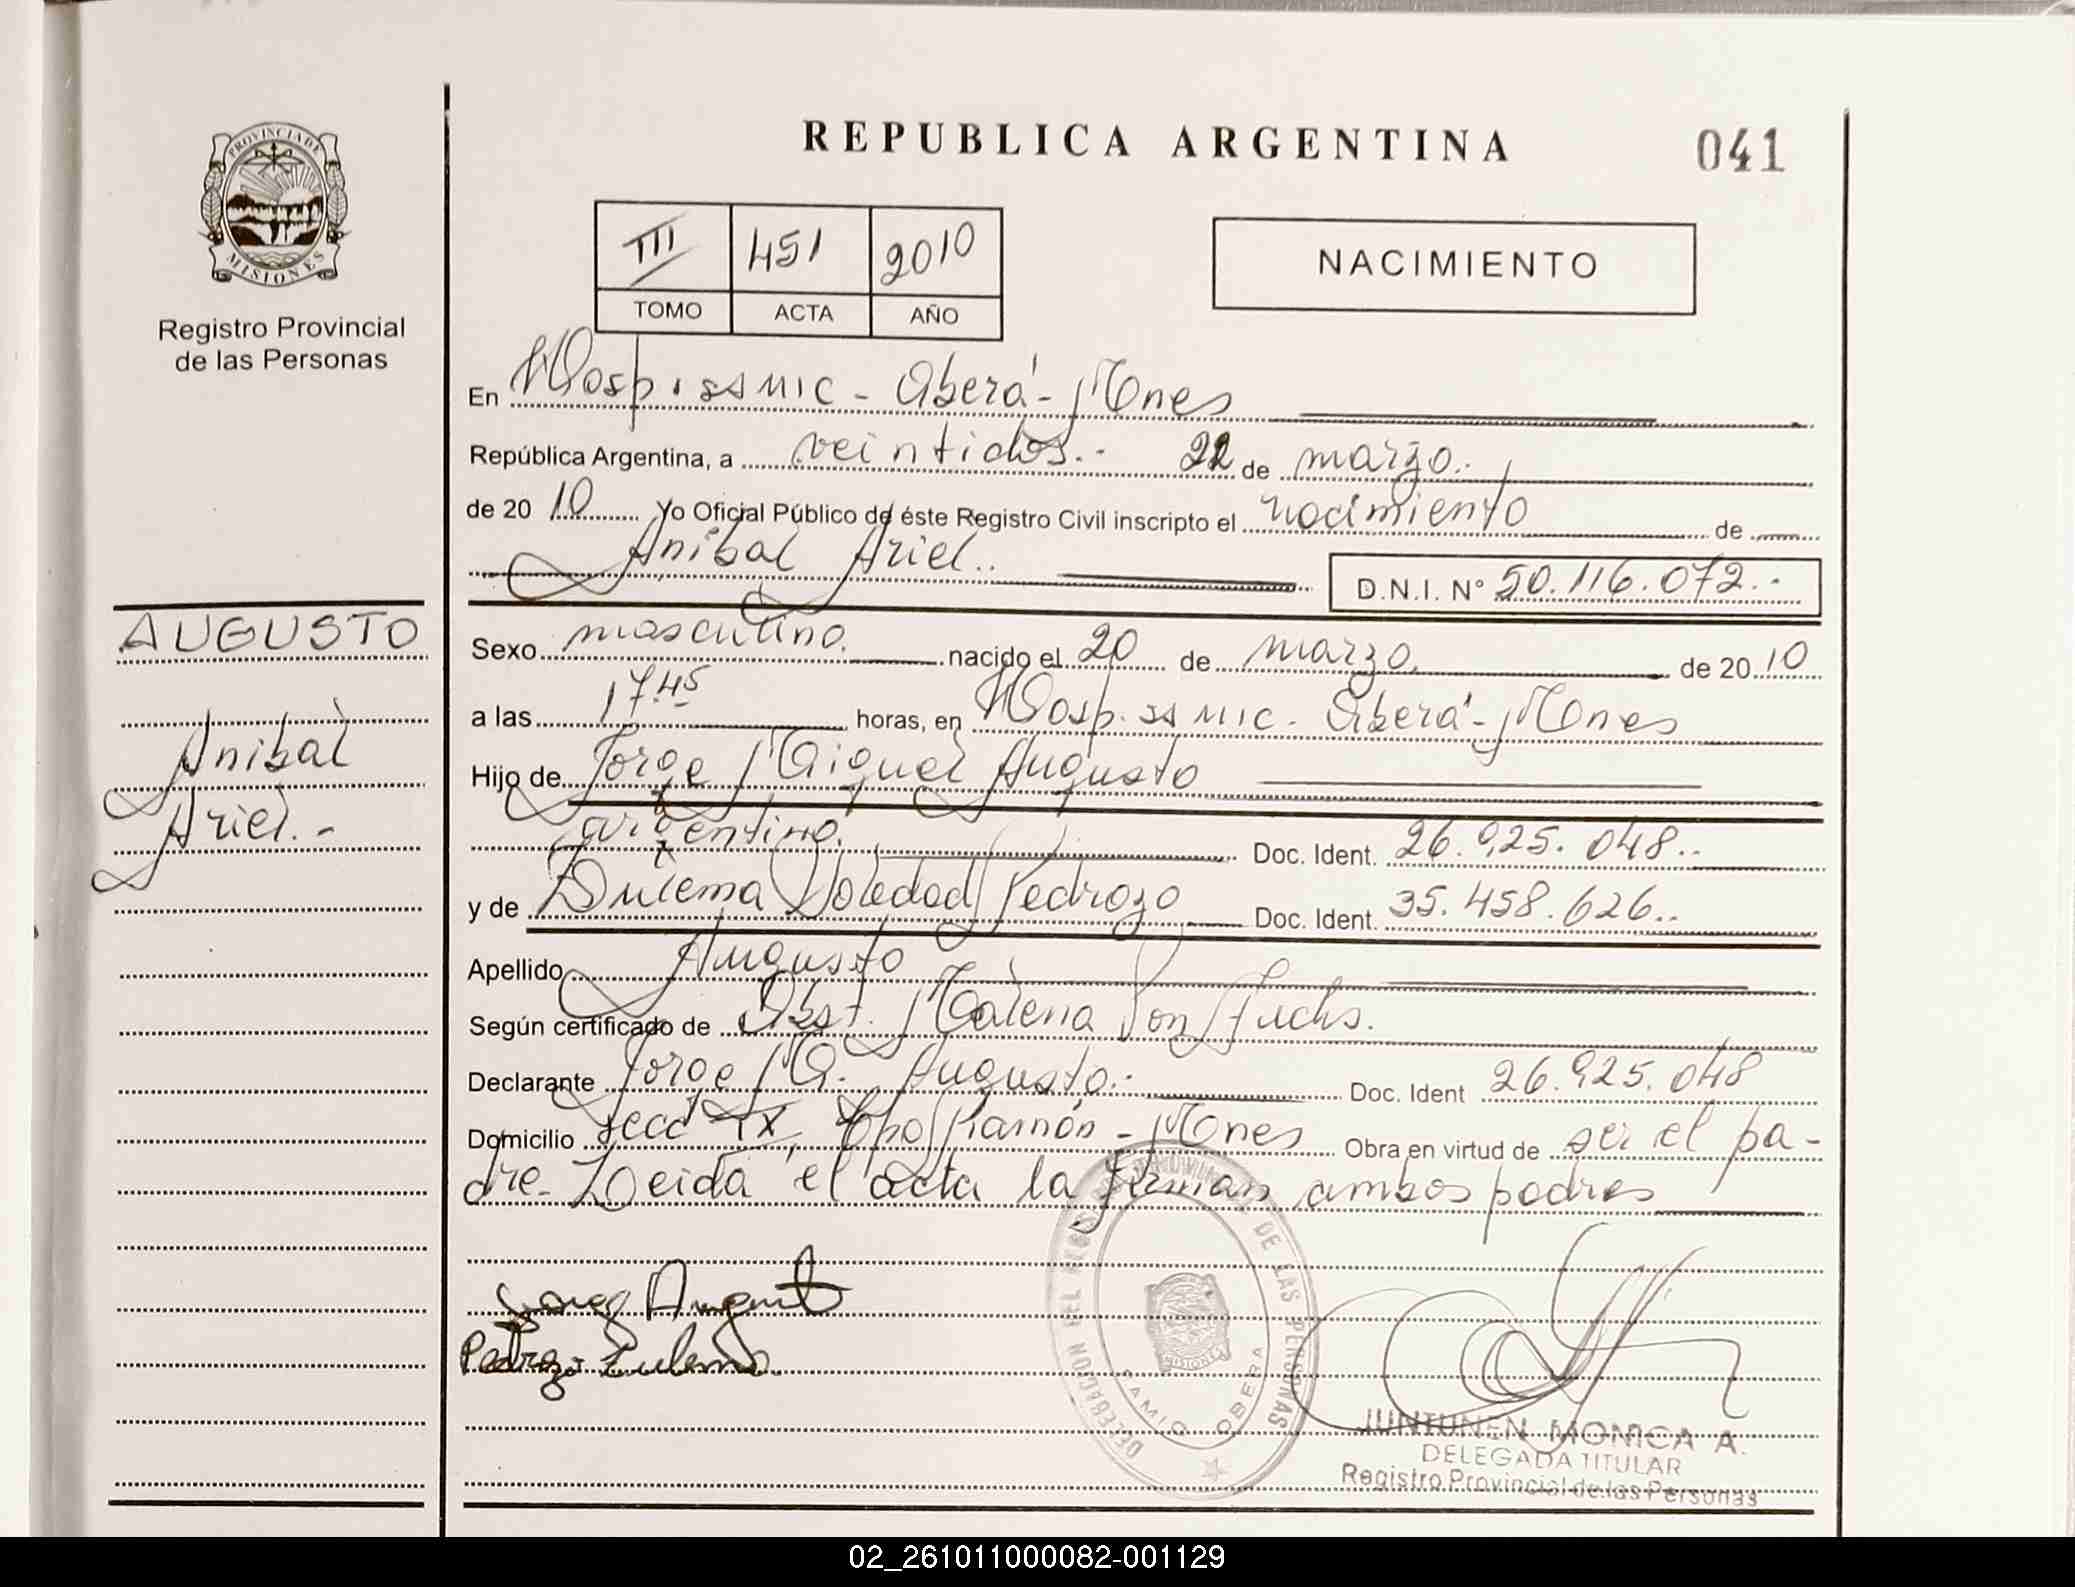 REPUBLICA ARGENTINA
041
PROVINCIA DE
MISIONES
Registro Provincial
de las Personas
III 451 2010
TOMO ACTA AÑO
NACIMIENTO
En Hosp. SAMIC - Oberá - Mnes
República Argentina, a veintidos.- 22 de marzo.
de 20 10 Yo Oficial Público de éste Registro Civil inscripto el nacimiento de
Anibal Ariel..
D.N.I. Nº 50.116.072.-
AUGUSTO
Anibal
Ariel.-
Sexo masculino. nacido el 20 de marzo. de 20 10
a las 17.45 horas, en Hosp. SAMIC - Oberá - Mnes
Hijo de Jorge Miguel Augusto
argentino. Doc. Ident. 26.925.048..
y de Zulema Soledad Pedrozo Doc. Ident. 35.458.626..
Apellido Augusto
Según certificado de Obst. Malena Von Fuchs.
Declarante Jorge M. Augusto.- Doc. Ident 26.925.048
Domicilio Secc IX, Cpo Ramón - Mnes Obra en virtud de ser el pa-
dre. Leida el acta la firman ambos padres
Jorge Augusto
Pedrozo Zulema
DELEGACION DEL REGISTRO PROVINCIAL DE LAS PERSONAS
MISIONES
SAMIC OBERA
JUNTUNEN MONICA A.
DELEGADA TITULAR
Registro Provincial de las Personas
02_261011000082-001129